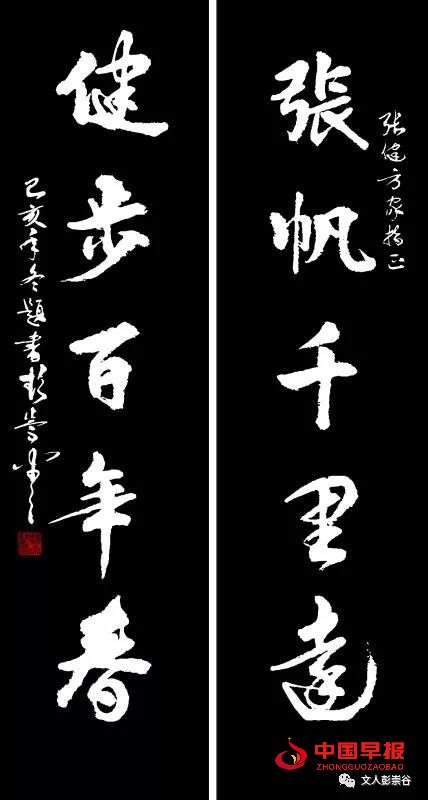 张健方家指正
張帆千里遠
健步百年春
己亥年冬題書彭崇谷
中国早报
ZHONGGUOZAOBAO
文人彭崇谷